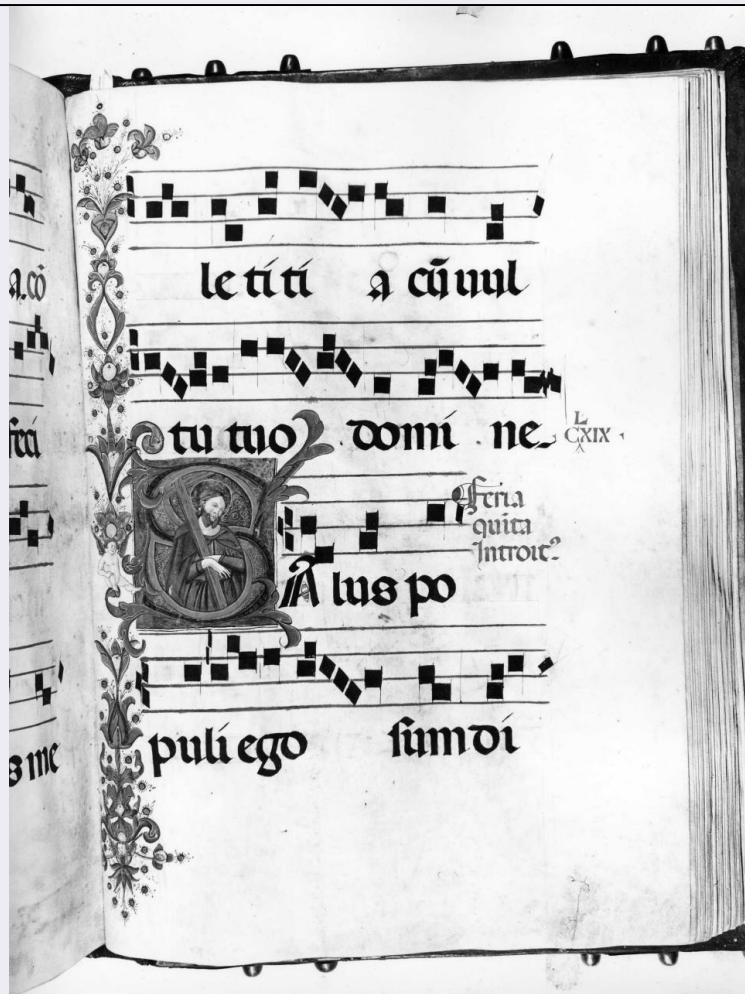 a.cō
feci
s me
le ti ti a cū uul
tu tuo domi ne
L
CXIX
Feria
quīta
Introit⁹
SA lus po
puli ego sum di